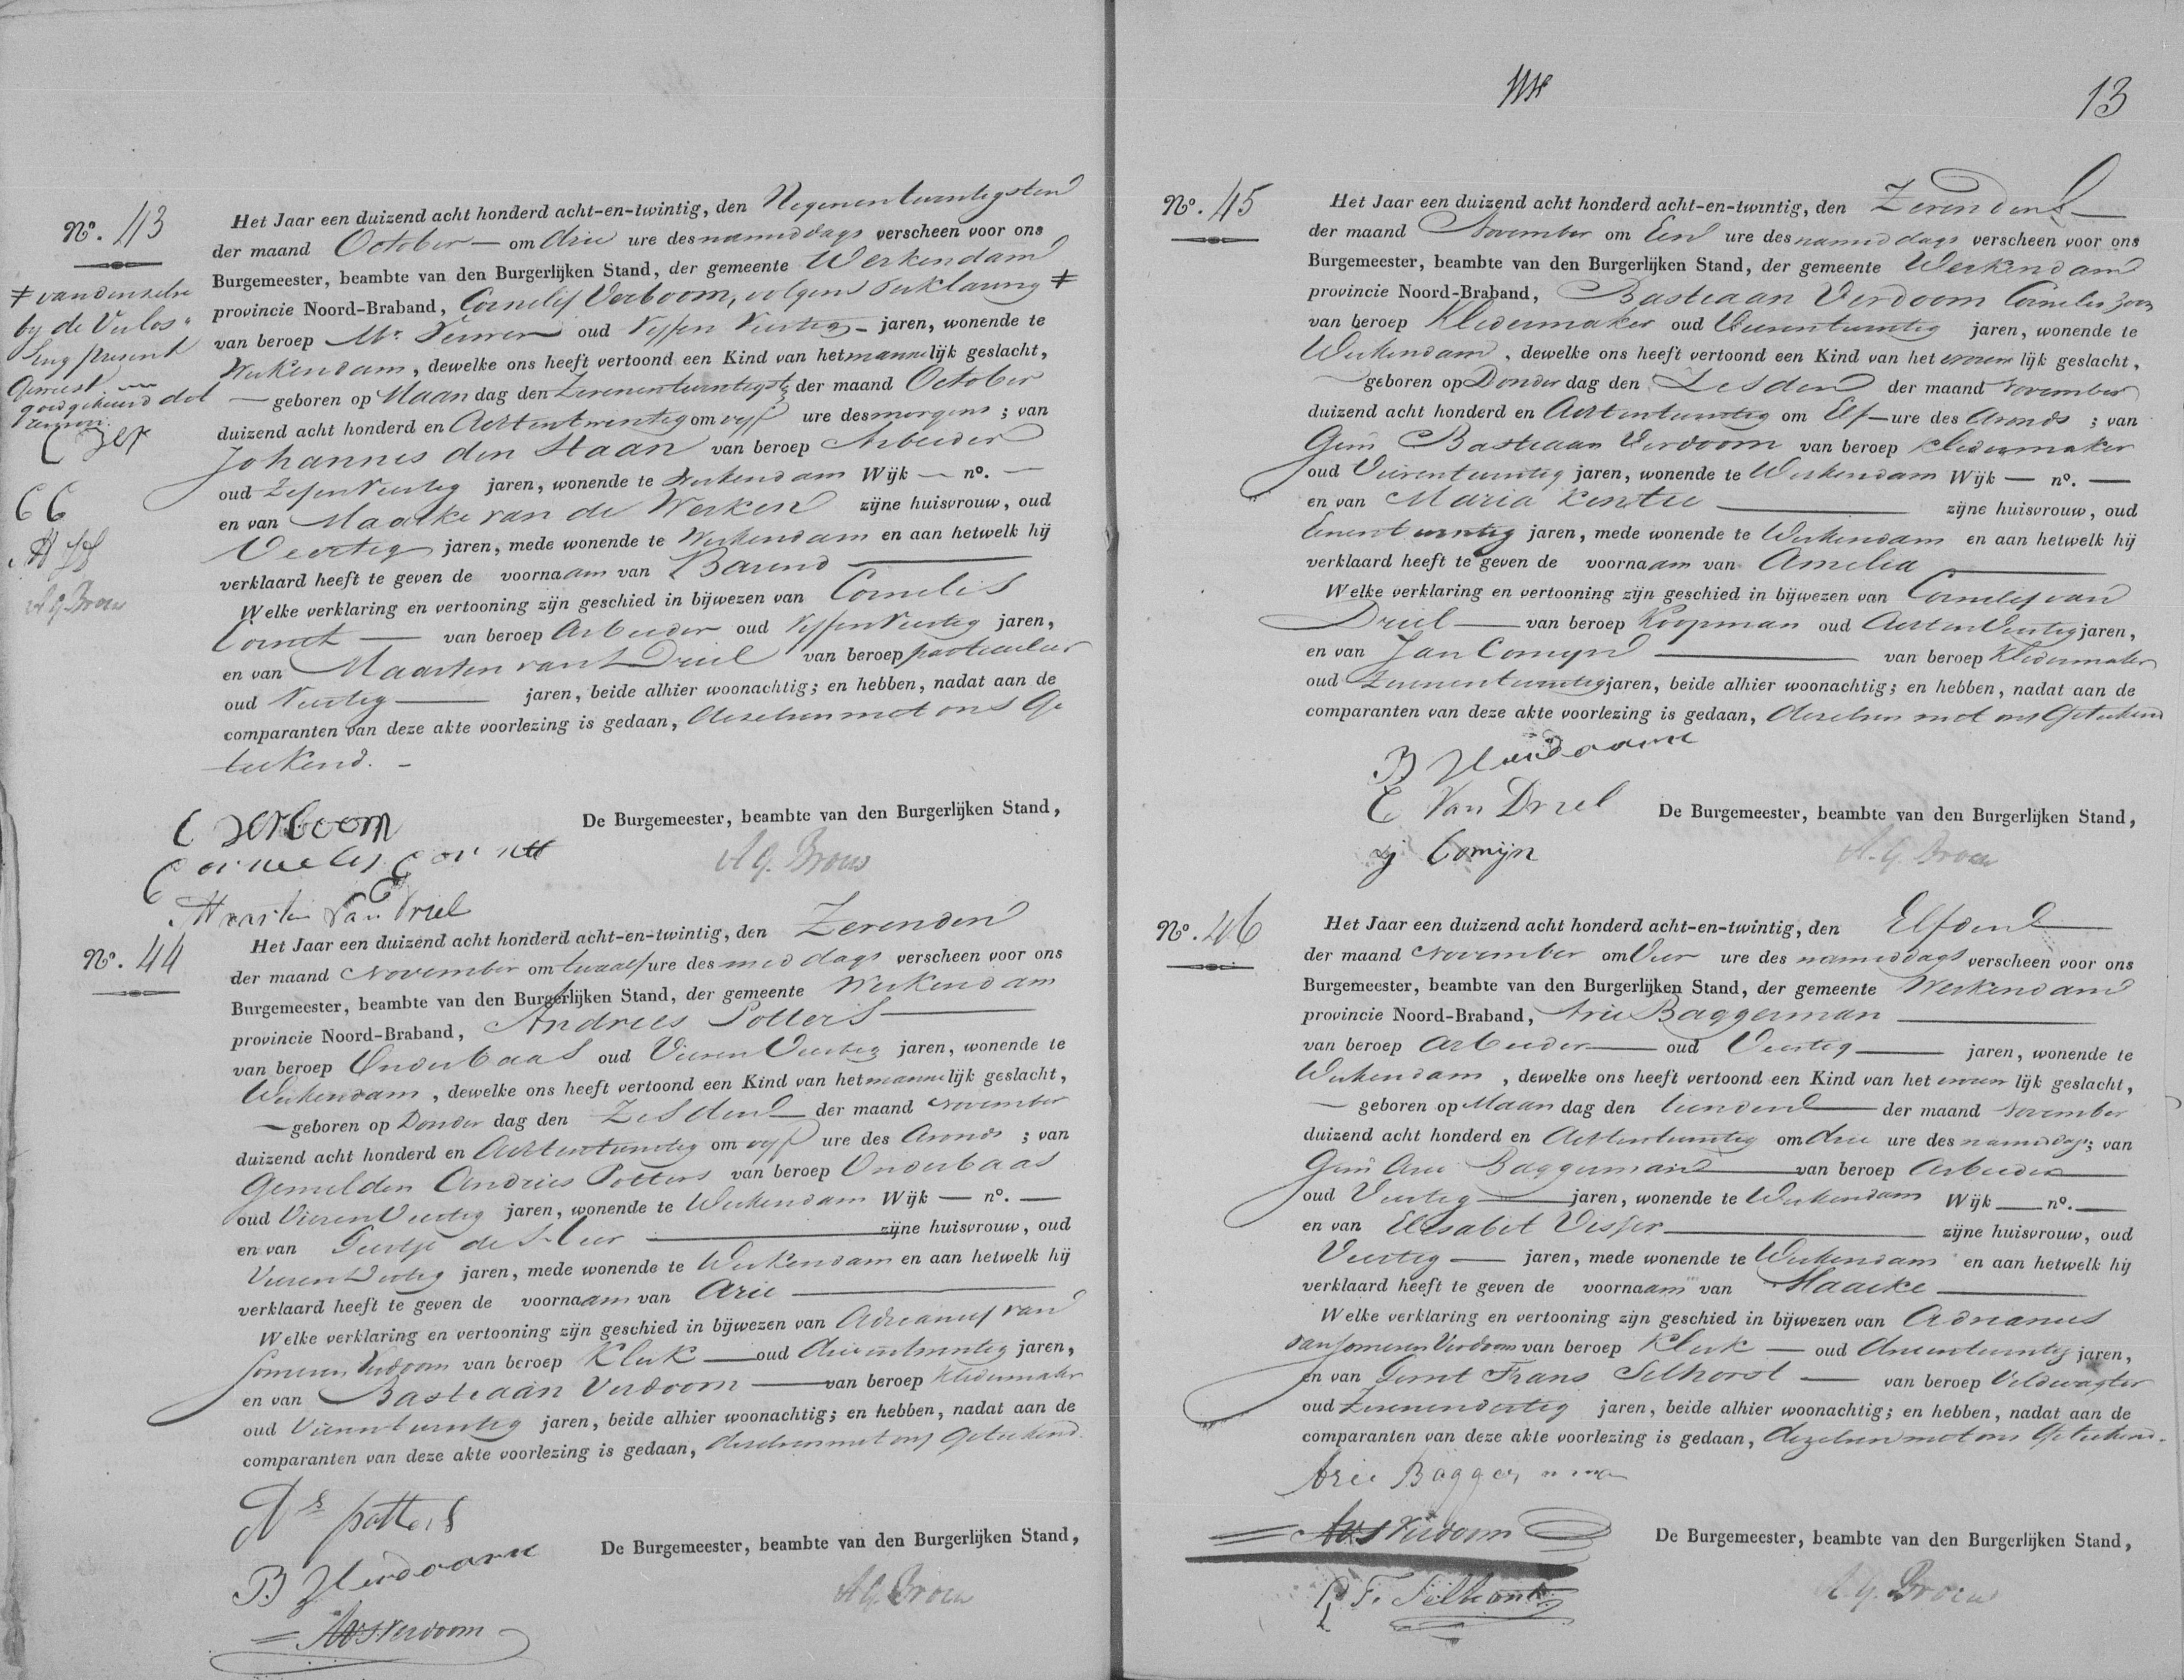 No. 43
Het Jaar een duizend acht honderd acht-en-twintig, den Negenentwintigsten
der maand October — om drie ure des namiddags verscheen voor ons
Burgemeester, beambte van den Burgerlijken Stand, der gemeente Werkendam
provincie Noord-Braband, Cornelis Verboom, volgens verklaring ≠
van beroep oud Vyfen Veertig - jaren, wonende te
Werkendam, dewelke ons heeft vertoond een Kind van het mannelijk geslacht,
— geboren op Maandag den Zevenentwintigste der maand October
duizend acht honderd en Achtentwintig om vyf ure des morgens ; van
Johannes den Haan van beroep Arbeider
oud Zesenveertig jaren, wonende te Werkendam Wijk — no. —
en van Maaike van de Werken zijne huisvrouw, oud
Veertig jaren, mede wonende te Werkendam en aan hetwelk hij
verklaard heeft te geven de voornaam van Barend —
Welke verklaring en vertooning zijn geschied in bijwezen van Cornelis
Cornet — van beroep Arbeider oud Vyfen Veertig jaren,
en van Maarten van Driel van beroep particulier
oud Veertig — jaren, beide alhier woonachtig; en hebben, nadat aan de
comparanten van deze akte voorlezing is gedaan, dezelven met ons Ge
teekend. -
≠ van denzelve
by de Verlos"
sing present
Geweest
goedgekeurd
C Ver
CC
M VD
A G. Brouw
C Verboom
Cornelis Cornet
Maarten Van Driel
De Burgemeester, beambte van den Burgerlijken Stand,
A G. Brouw
No. 44
Het Jaar een duizend acht honderd acht-en-twintig, den Zevenden
der maand November om twaalf ure des middags verscheen voor ons
Burgemeester, beambte van den Burgerlijken Stand, der gemeente Werkendam
provincie Noord-Braband, Andries Potters —
van beroep Onderbaas oud Vieren Veertig jaren, wonende te
Werkendam, dewelke ons heeft vertoond een Kind van het mannelijk geslacht,
— geboren op Donder dag den Zesden — der maand November
duizend acht honderd en Achtentwintig om vyf ure des Avonds ; van
Gemelden Andries Potters van beroep Onderbaas
oud Vieren Veertig jaren, wonende te Werkendam Wijk — no. —
en van Geertje de — zijne huisvrouw, oud
jaren, mede wonende te Werkendam en aan hetwelk hij
verklaard heeft te geven de voornaam van Arie —
Welke verklaring en vertooning zijn geschied in bijwezen van Adrianus van
Someren Verdoorn van beroep Klerk — oud drieentwintig jaren,
en van Bastiaan Verdoorn — van beroep Kledermaker
oud Vierentwintig jaren, beide alhier woonachtig; en hebben, nadat aan de
comparanten van deze akte voorlezing is gedaan, dezelven met ons Geteekend.
As potters
B Verdoorn
AVSVerdoorn
De Burgemeester, beambte van den Burgerlijken Stand,
A G. Brouw
13
No. 45
Het Jaar een duizend acht honderd acht-en-twintig, den Zevenden —
der maand November om Een ure des namiddags verscheen voor ons
Burgemeester, beambte van den Burgerlijken Stand, der gemeente Werkendam
provincie Noord-Braband, Bastiaan Verdoorn Cornelis zoon
van beroep Kledermaker oud Vierentwintig jaren, wonende te
Werkendam, dewelke ons heeft vertoond een Kind van het vrouwlijk geslacht,
— geboren op Donder dag den Zesden der maand November
duizend acht honderd en Achtentwintig om Elf — ure des Avonds ; van
Gem Bastiaan Verdoorn van beroep Kledermaker
oud Vierentwintig jaren, wonende te Werkendam Wijk — no. —
en van Maria — zijne huisvrouw, oud
Eenentwintig jaren, mede wonende te Werkendam en aan hetwelk hij
verklaard heeft te geven de voornaam van Amelia —
Welke verklaring en vertooning zijn geschied in bijwezen van Cornelis van
Driel — van beroep Koopman oud Achten Veertig jaren,
en van Jan Comyn — van beroep Kledermaker
oud Zevenentwintig jaren, beide alhier woonachtig; en hebben, nadat aan de
comparanten van deze akte voorlezing is gedaan, dezelven met ons Geteekend
B Verdoorn
C Van Driel
J Comijn
De Burgemeester, beambte van den Burgerlijken Stand,
A. G. Brouw
No. 46
Het Jaar een duizend acht honderd acht-en-twintig, den Elfden —
der maand November om Vier ure des namiddags verscheen voor ons
Burgemeester, beambte van den Burgerlijken Stand, der gemeente Werkendam
provincie Noord-Braband, Arie Baggerman —
van beroep Arbeider — oud Veertig — jaren, wonende te
Werkendam, dewelke ons heeft vertoond een Kind van het vrouwlijk geslacht,
— geboren op Maan dag den tienden — der maand November
duizend acht honderd en Achtentwintig om drie ure des namiddags; van
Gem Arie Baggerman — van beroep Arbeider —
oud Veertig — jaren, wonende te Werkendam Wijk — no. —
en van Elisabet Visser — zijne huisvrouw, oud
Veertig — jaren, mede wonende te Werkendam en aan hetwelk hij
verklaard heeft te geven de voornaam van Maaike —
Welke verklaring en vertooning zijn geschied in bijwezen van Adrianus
van Someren Verdoorn van beroep Klerk — oud drieentwintig jaren,
en van Gerrit Frans Selhorst — van beroep Veldwagter
oud Zevenendertig jaren, beide alhier woonachtig; en hebben, nadat aan de
comparanten van deze akte voorlezing is gedaan, dezelven met ons Geteekend.
Arie Baggerman
AVSVerdoorn
G F. Selhorst
De Burgemeester, beambte van den Burgerlijken Stand,
A. G. Brouw